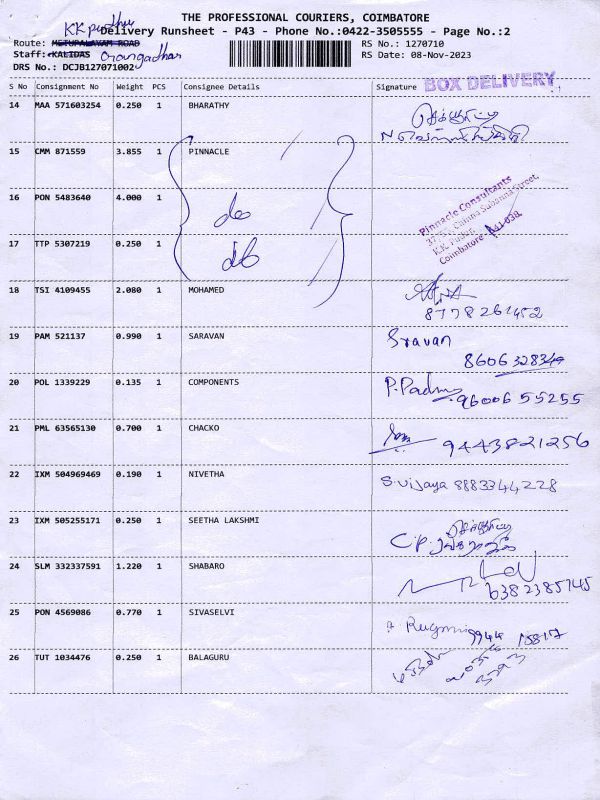 THE PROFESSIONAL COURIERS, COIMBATORE
Delivery Runsheet - P43 - Phone No.:0422-3505555 - Page No.:2
Route: METUPALAYAM ROAD
RS No.: 1270710
Staff: KALIDAS
RS Date: 08-Nov-2023
DRS No.: DCJB127071002
BOX DELIVERY
S No Consignment No Weight PCS Consignee Details Signature
14 MAA 571603254 0.250 1 BHARATHY
15 CMM 871559 3.855 1 PINNACLE
16 PON 5483640 4.000 1
Pinnacle Consultants
Coimbatore
17 TTP 5307219 0.250 1
18 TSI 4109455 2.080 1 MOHAMED
8778261452
19 PAM 521137 0.990 1 SARAVAN Sravan
8606328349
20 POL 1339229 0.135 1 COMPONENTS P.Padma
9600655255
21 PML 63565130 0.700 1 CHACKO 9443821256
22 IXM 504969469 0.190 1 NIVETHA S.vijaya 8883344228
23 IXM 505255171 0.250 1 SEETHA LAKSHMI
24 SLM 332337591 1.220 1 SHABARO
6382385745
25 PON 4569086 0.770 1 SIVASELVI
26 TUT 1034476 0.250 1 BALAGURU